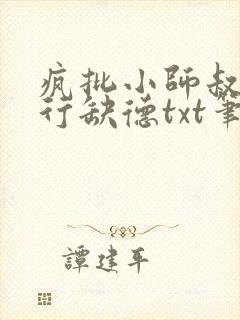 疯批小師叔
行缺德txt筆
譚建平